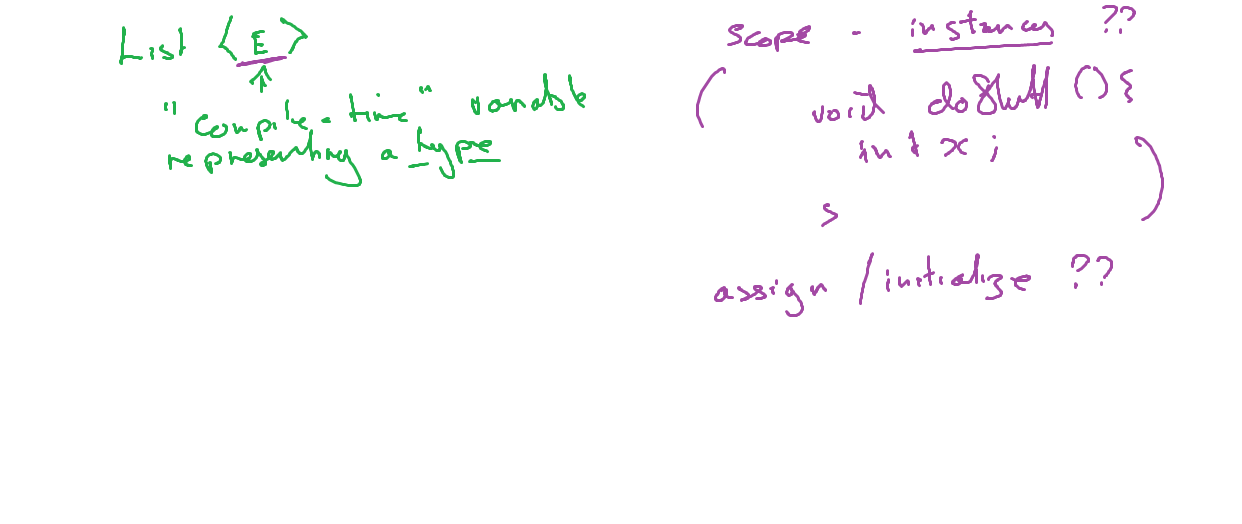 List <E>
"Compile-time" variable
representing a type
scope - instances ??
( void doStuff () {
int x ;
} )
assign / initialize ??